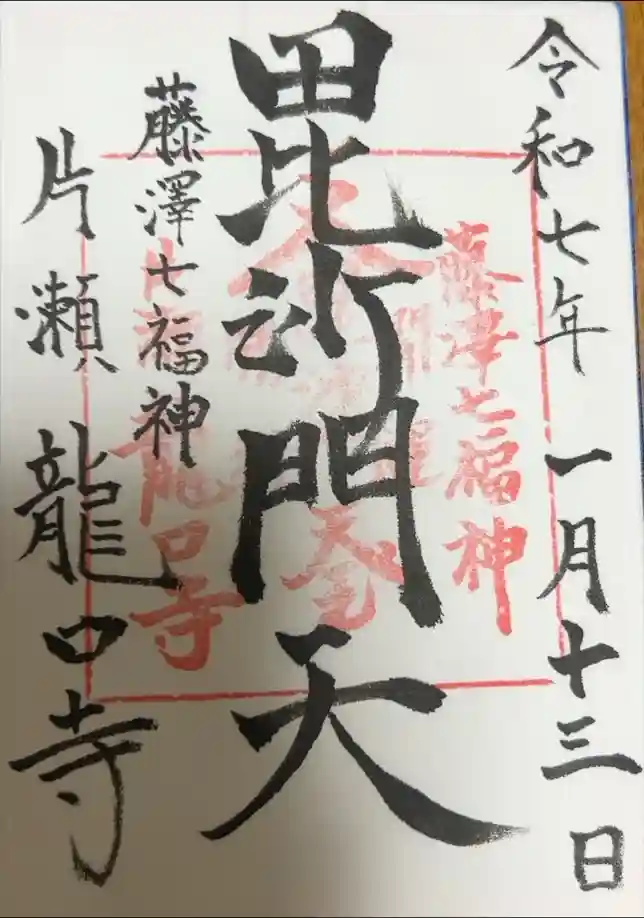 令和七年一月十三日
毘沙門天
藤澤七福神
片瀬龍口寺
藤澤七福神
龍口寺